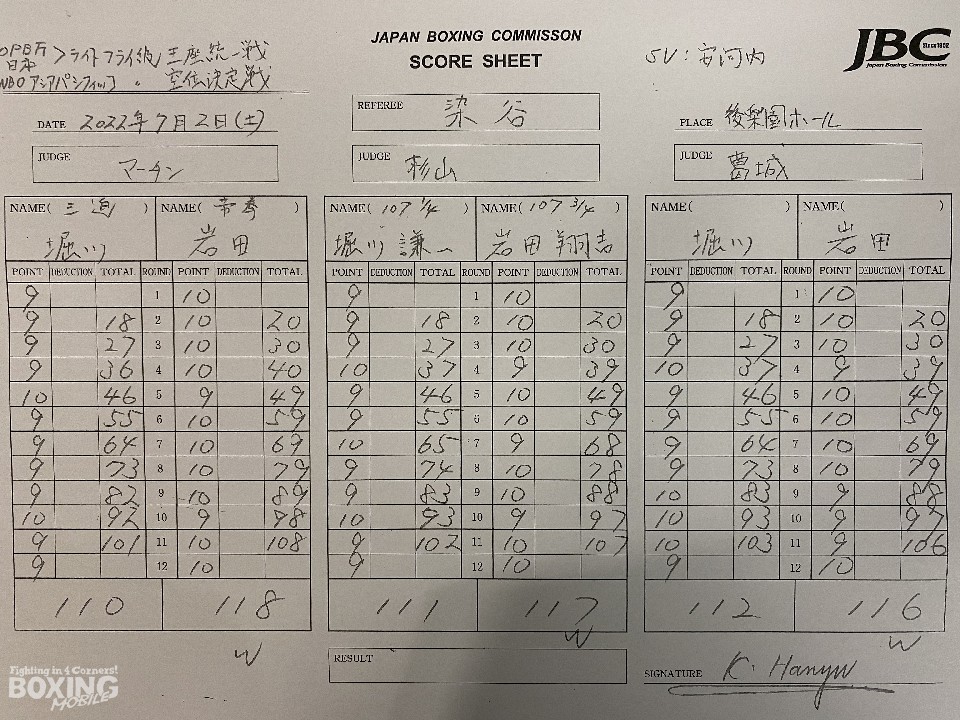 JAPAN BOXING COMMISSON
SCORE SHEET
JBC Since1952
Japan Boxing Commission
OPBF
日本 > ライトフライ級 王座統一戦
WBO アジアパシフィック 〃 空位決定戦
SV:安河内
DATE 2022年7月2日(土)
REFEREE 染谷
PLACE 後楽園ホール
JUDGE マーチン
JUDGE 杉山
JUDGE 葛城
NAME(三迫) NAME(帝拳) NAME(107 1/4) NAME(107 3/4) NAME( ) NAME( )
堀川 岩田 堀川謙一 岩田翔吉 堀川 岩田
POINT DEDUCTION TOTAL ROUND POINT DEDUCTION TOTAL POINT DEDUCTION TOTAL ROUND POINT DEDUCTION TOTAL POINT DEDUCTION TOTAL ROUND POINT DEDUCTION TOTAL
9 1 10 9 1 10 9 1 10
9 18 2 10 20 9 18 2 10 20 9 18 2 10 20
9 27 3 10 30 9 27 3 10 30 9 27 3 10 30
9 36 4 10 40 10 37 4 9 39 10 37 4 9 39
10 46 5 9 49 9 46 5 10 49 9 46 5 10 49
9 55 6 10 59 9 55 6 10 59 9 55 6 10 59
9 64 7 10 69 10 65 7 9 68 9 64 7 10 69
9 73 8 10 79 9 74 8 10 78 9 73 8 10 79
9 82 9 10 89 9 83 9 10 88 10 83 9 9 88
10 92 10 9 98 10 93 10 9 97 10 93 10 9 97
9 101 11 10 108 9 102 11 10 107 10 103 11 9 106
9 12 10 9 12 10 9 12 10
110 118 111 117 112 116
W W W
RESULT
SIGNATURE K. Hanyu
Fighting in 4 Corners!
BOXING
MOBILE